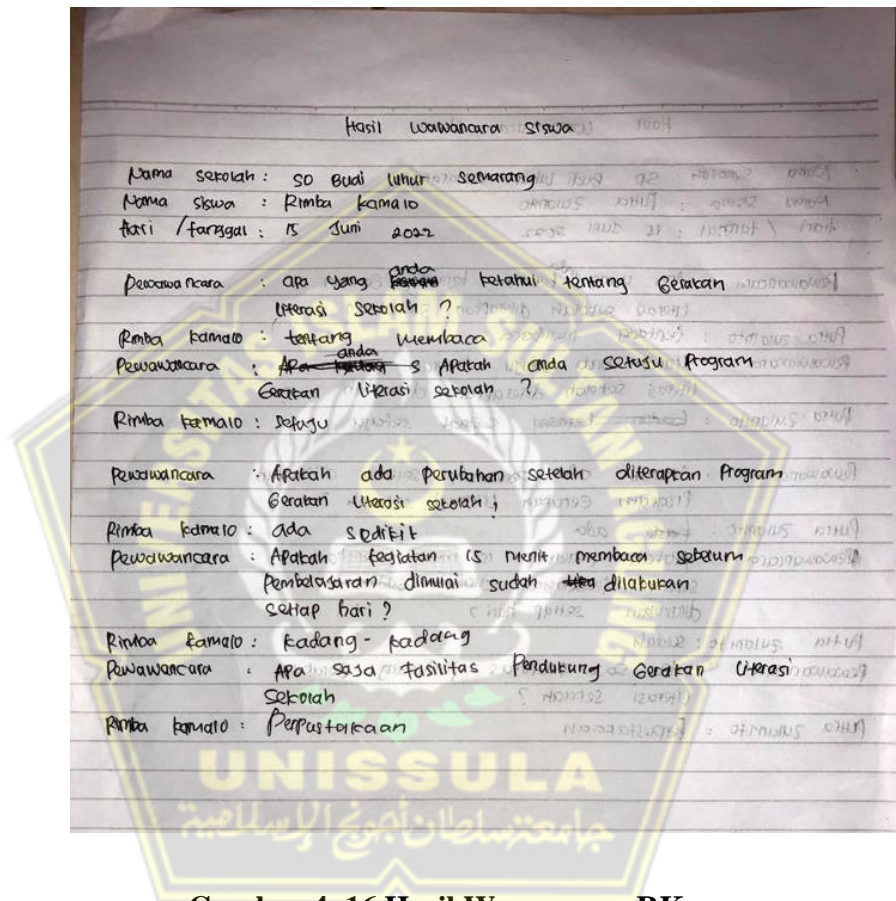 Hasil wawancara siswa
Nama sekolah : SD Budi luhur semarang
Nama siswa : Rimba kamalo
Hari / tanggal : 15 Juni 2022
Pewawancara : apa yang anda ketahui tentang Gerakan
literasi sekolah ?
Rimba kamalo : tentang membaca
Pewawancara : anda s Apakah anda setuju Program
Gerakan literasi sekolah ?
Rimba kamalo : setuju
Pewawancara : Apakah ada perubahan setelah diterapkan Program
Gerakan literasi sekolah ;
Rimba kamalo : ada sedikit
Pewawancara : Apakah kegiatan 15 menit membaca sebelum
Pembelajaran dimulai sudah dilakukan
setiap hari ?
Rimba kamalo : kadang - kadang
Pewawancara : Apa saja fasilitas Pendukung Gerakan literasi
sekolah
Rimba kamalo : Perpustakaan
UNIVERSITAS ISLAM SULTAN AGUNG
UNISSULA
جامعة سلطان أجونج الإسلامية